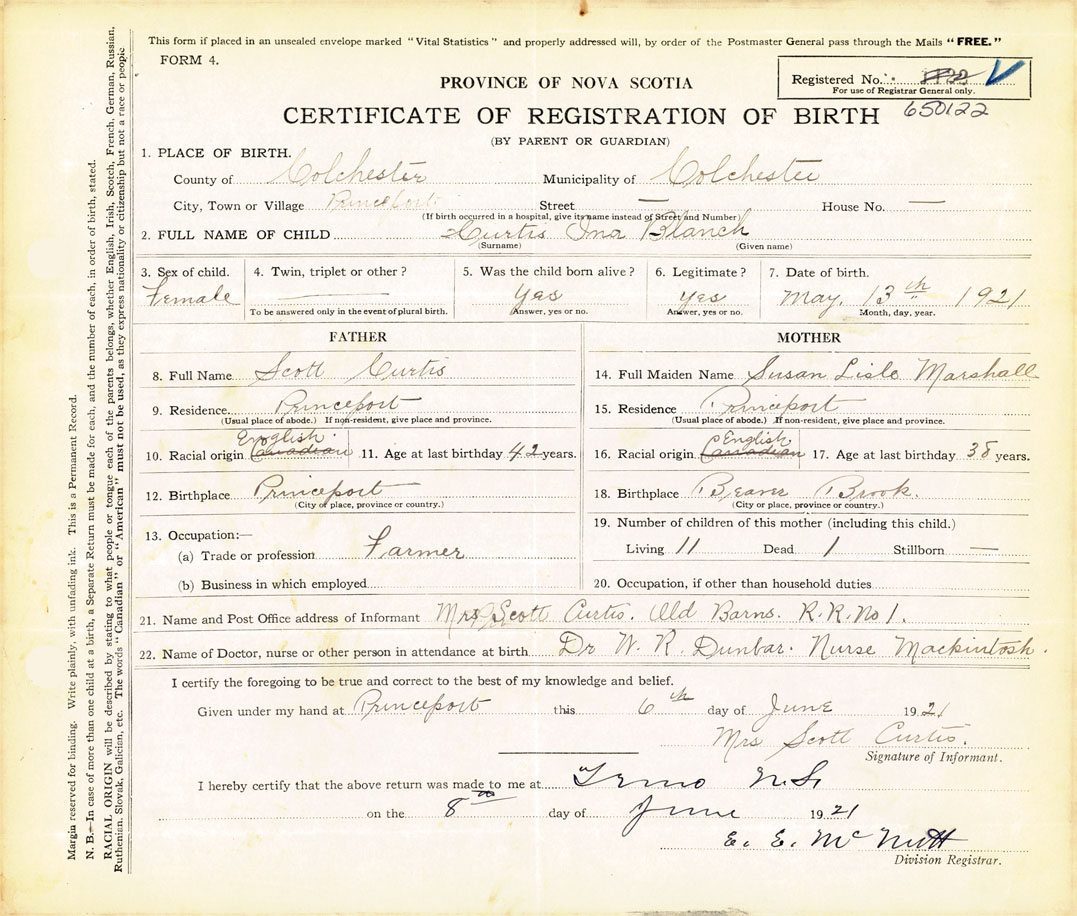 This form if placed in an unsealed envelope marked "Vital Statistics" and properly addressed will, by order of the Postmaster General pass through the Mails "FREE."
FORM 4.
Registered No.
For use of Registrar General only.
650122
PROVINCE OF NOVA SCOTIA
CERTIFICATE OF REGISTRATION OF BIRTH
(BY PARENT OR GUARDIAN)
1. PLACE OF BIRTH.
County of Colchester Municipality of Colchester
City, Town or Village Princeport Street — House No. —
(If birth occurred in a hospital, give its name instead of Street and Number)
2. FULL NAME OF CHILD Curtis Ina Blanch
(Surname) (Given name)
3. Sex of child. 4. Twin, triplet or other? 5. Was the child born alive? 6. Legitimate? 7. Date of birth.
Female — Yes Yes May, 13th 1921
To be answered only in the event of plural birth. Answer, yes or no. Answer, yes or no. Month, day, year.
FATHER
8. Full Name Scott Curtis
9. Residence Princeport
(Usual place of abode.) If non-resident, give place and province.
English
10. Racial origin Canadian 11. Age at last birthday 42 years.
12. Birthplace Princeport
(City or place, province or country.)
13. Occupation:—
(a) Trade or profession Farmer
(b) Business in which employed
MOTHER
14. Full Maiden Name Susan Lisle Marshall
15. Residence Princeport
(Usual place of abode.) If non-resident, give place and province.
English
16. Racial origin Canadian 17. Age at last birthday 38 years.
18. Birthplace Beaver Brook.
(City or place, province or country.)
19. Number of children of this mother (including this child.)
Living 11 Dead 1 Stillborn —
20. Occupation, if other than household duties
21. Name and Post Office address of Informant Mrs Scott Curtis. Old Barns. R.R. No 1.
22. Name of Doctor, nurse or other person in attendance at birth Dr W. R. Dunbar. Nurse Mackintosh.
I certify the foregoing to be true and correct to the best of my knowledge and belief.
Given under my hand at Princeport this 6th day of June 1921
Mrs Scott Curtis.
Signature of Informant.
I hereby certify that the above return was made to me at Truro N.S.
on the 8th day of June 1921
E. E. McNutt
Division Registrar.
Margin reserved for binding. Write plainly, with unfading ink. This is a Permanent Record.
N. B.—In case of more than one child at a birth, a Separate Return must be made for each, and the number of each, in order of birth, stated.
RACIAL ORIGIN will be described by stating to what people or tongue each of the parents belongs, whether English, Irish, Scotch, French, German, Russian,
Ruthenian, Slovak, Galician, etc. The words "Canadian" or "American" must not be used, as they express nationality or citizenship but not a race or people